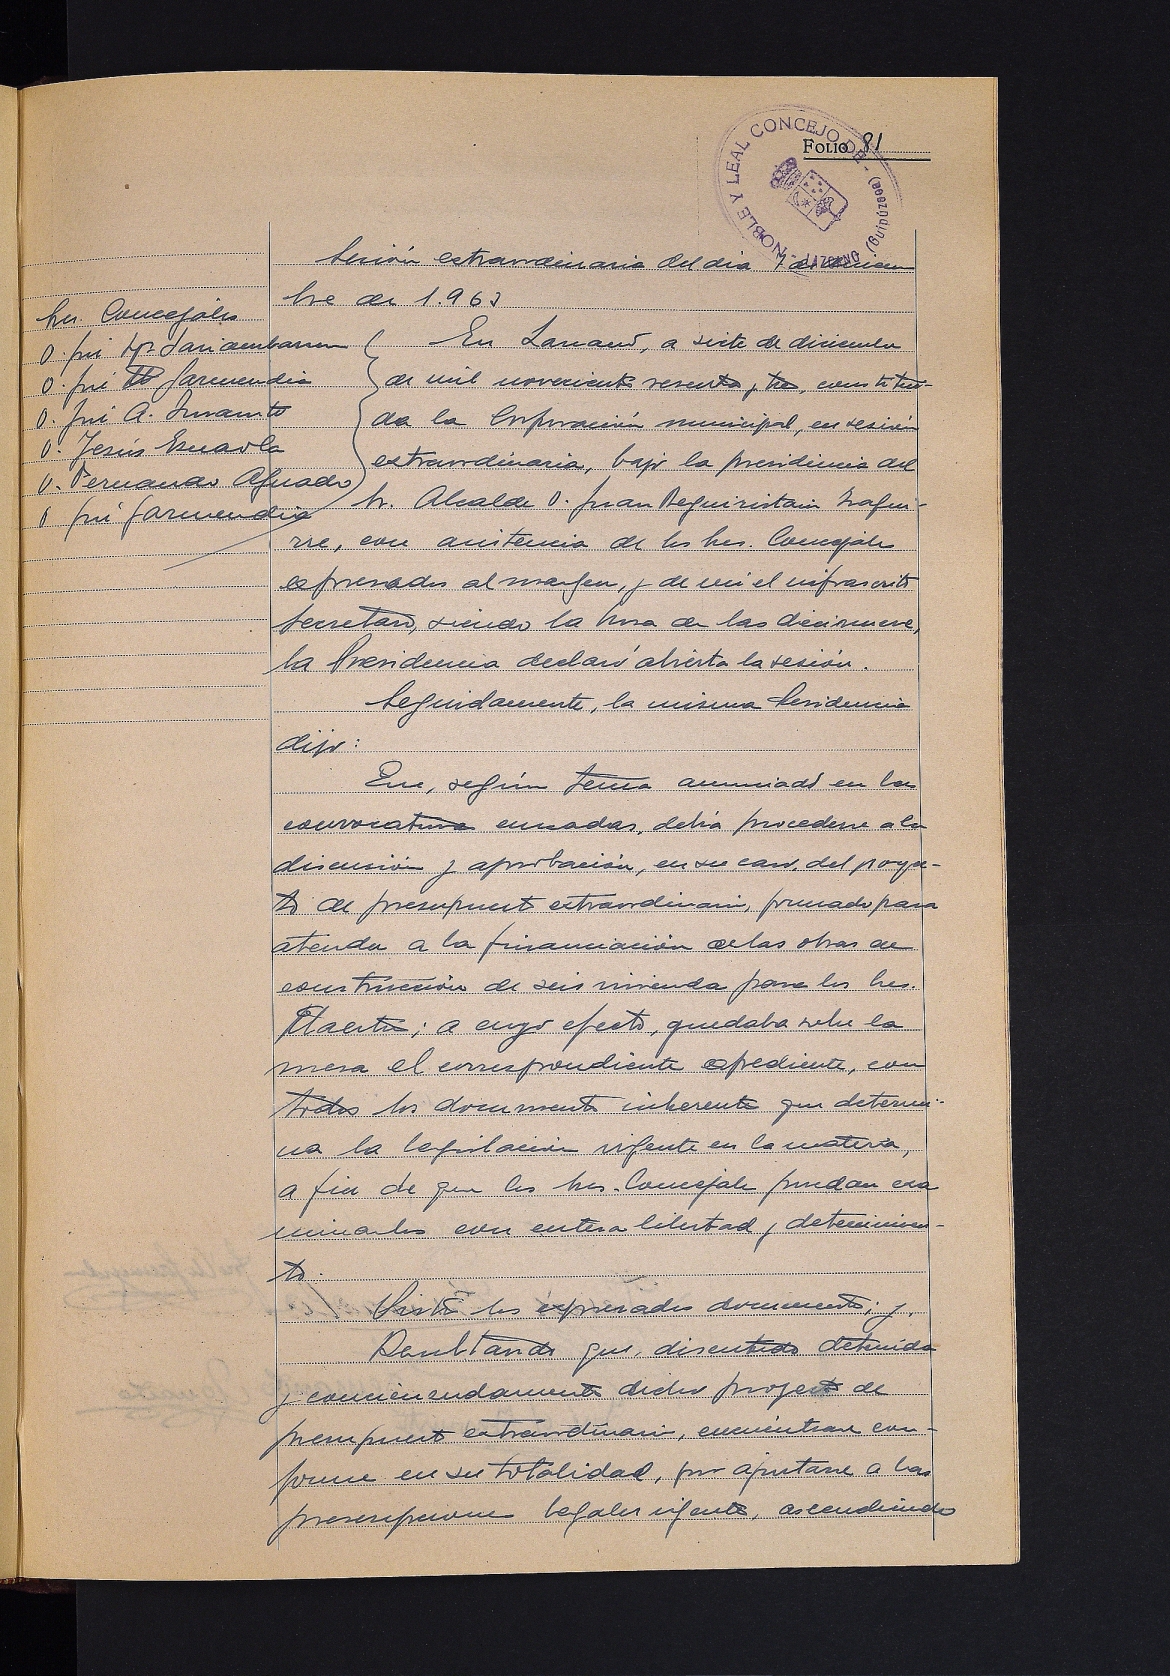 FOLIO 81
NOBLE Y LEAL CONCEJO DE (Guipúzcoa)
Sesión extraordinaria del dia 7 de diciem
bre de 1.963
Sres. Concejales
D. José
D. José Garmendia
D. José A.
D. Jesús
D. Fernando Aguado
D José Garmendia
En, a siete de diciembre
de mil novecientos sesenta y tres, constitui-
da la Corporación municipal, en sesión
extraordinaria, bajo la presidencia del
Sr. Alcalde D. Juan Beguiristain Izagui-
rre, con asistencia de los Sres. Concejales
expresados al margen, y de mi el infrascrito
Secretario, siendo la hora de las diecinueve,
la Presidencia declaró abierta la sesión.
Seguidamente, la misma Presidencia
dijo:
Que, según tema anunciado en las
convocatorias cursadas, debía procederse a la
discusión y aprobación, en su caso, del proyec-
to de presupuesto extraordinario, formado para
atender a la financiación de las obras de
construcción de seis vivienda para los Sres.
Maestros; a cuyo efecto, quedaba sobre la
mesa el correspondiente expediente, con
todos los documentos inherentes que determi-
na la legislación vigente en la materia,
a fin de que los Sres. Concejales puedan exa
minarlos con entera libertad y detenimien-
to.
Vistos los expresados documentos; y,
Resultando que, discutido detenida
y concienzudamente dicho proyecto de
presupuesto extraordinario, encuéntrase con-
forme en su totalidad, por ajustarse a las
prescripciones legales vigentes, ascendiendo